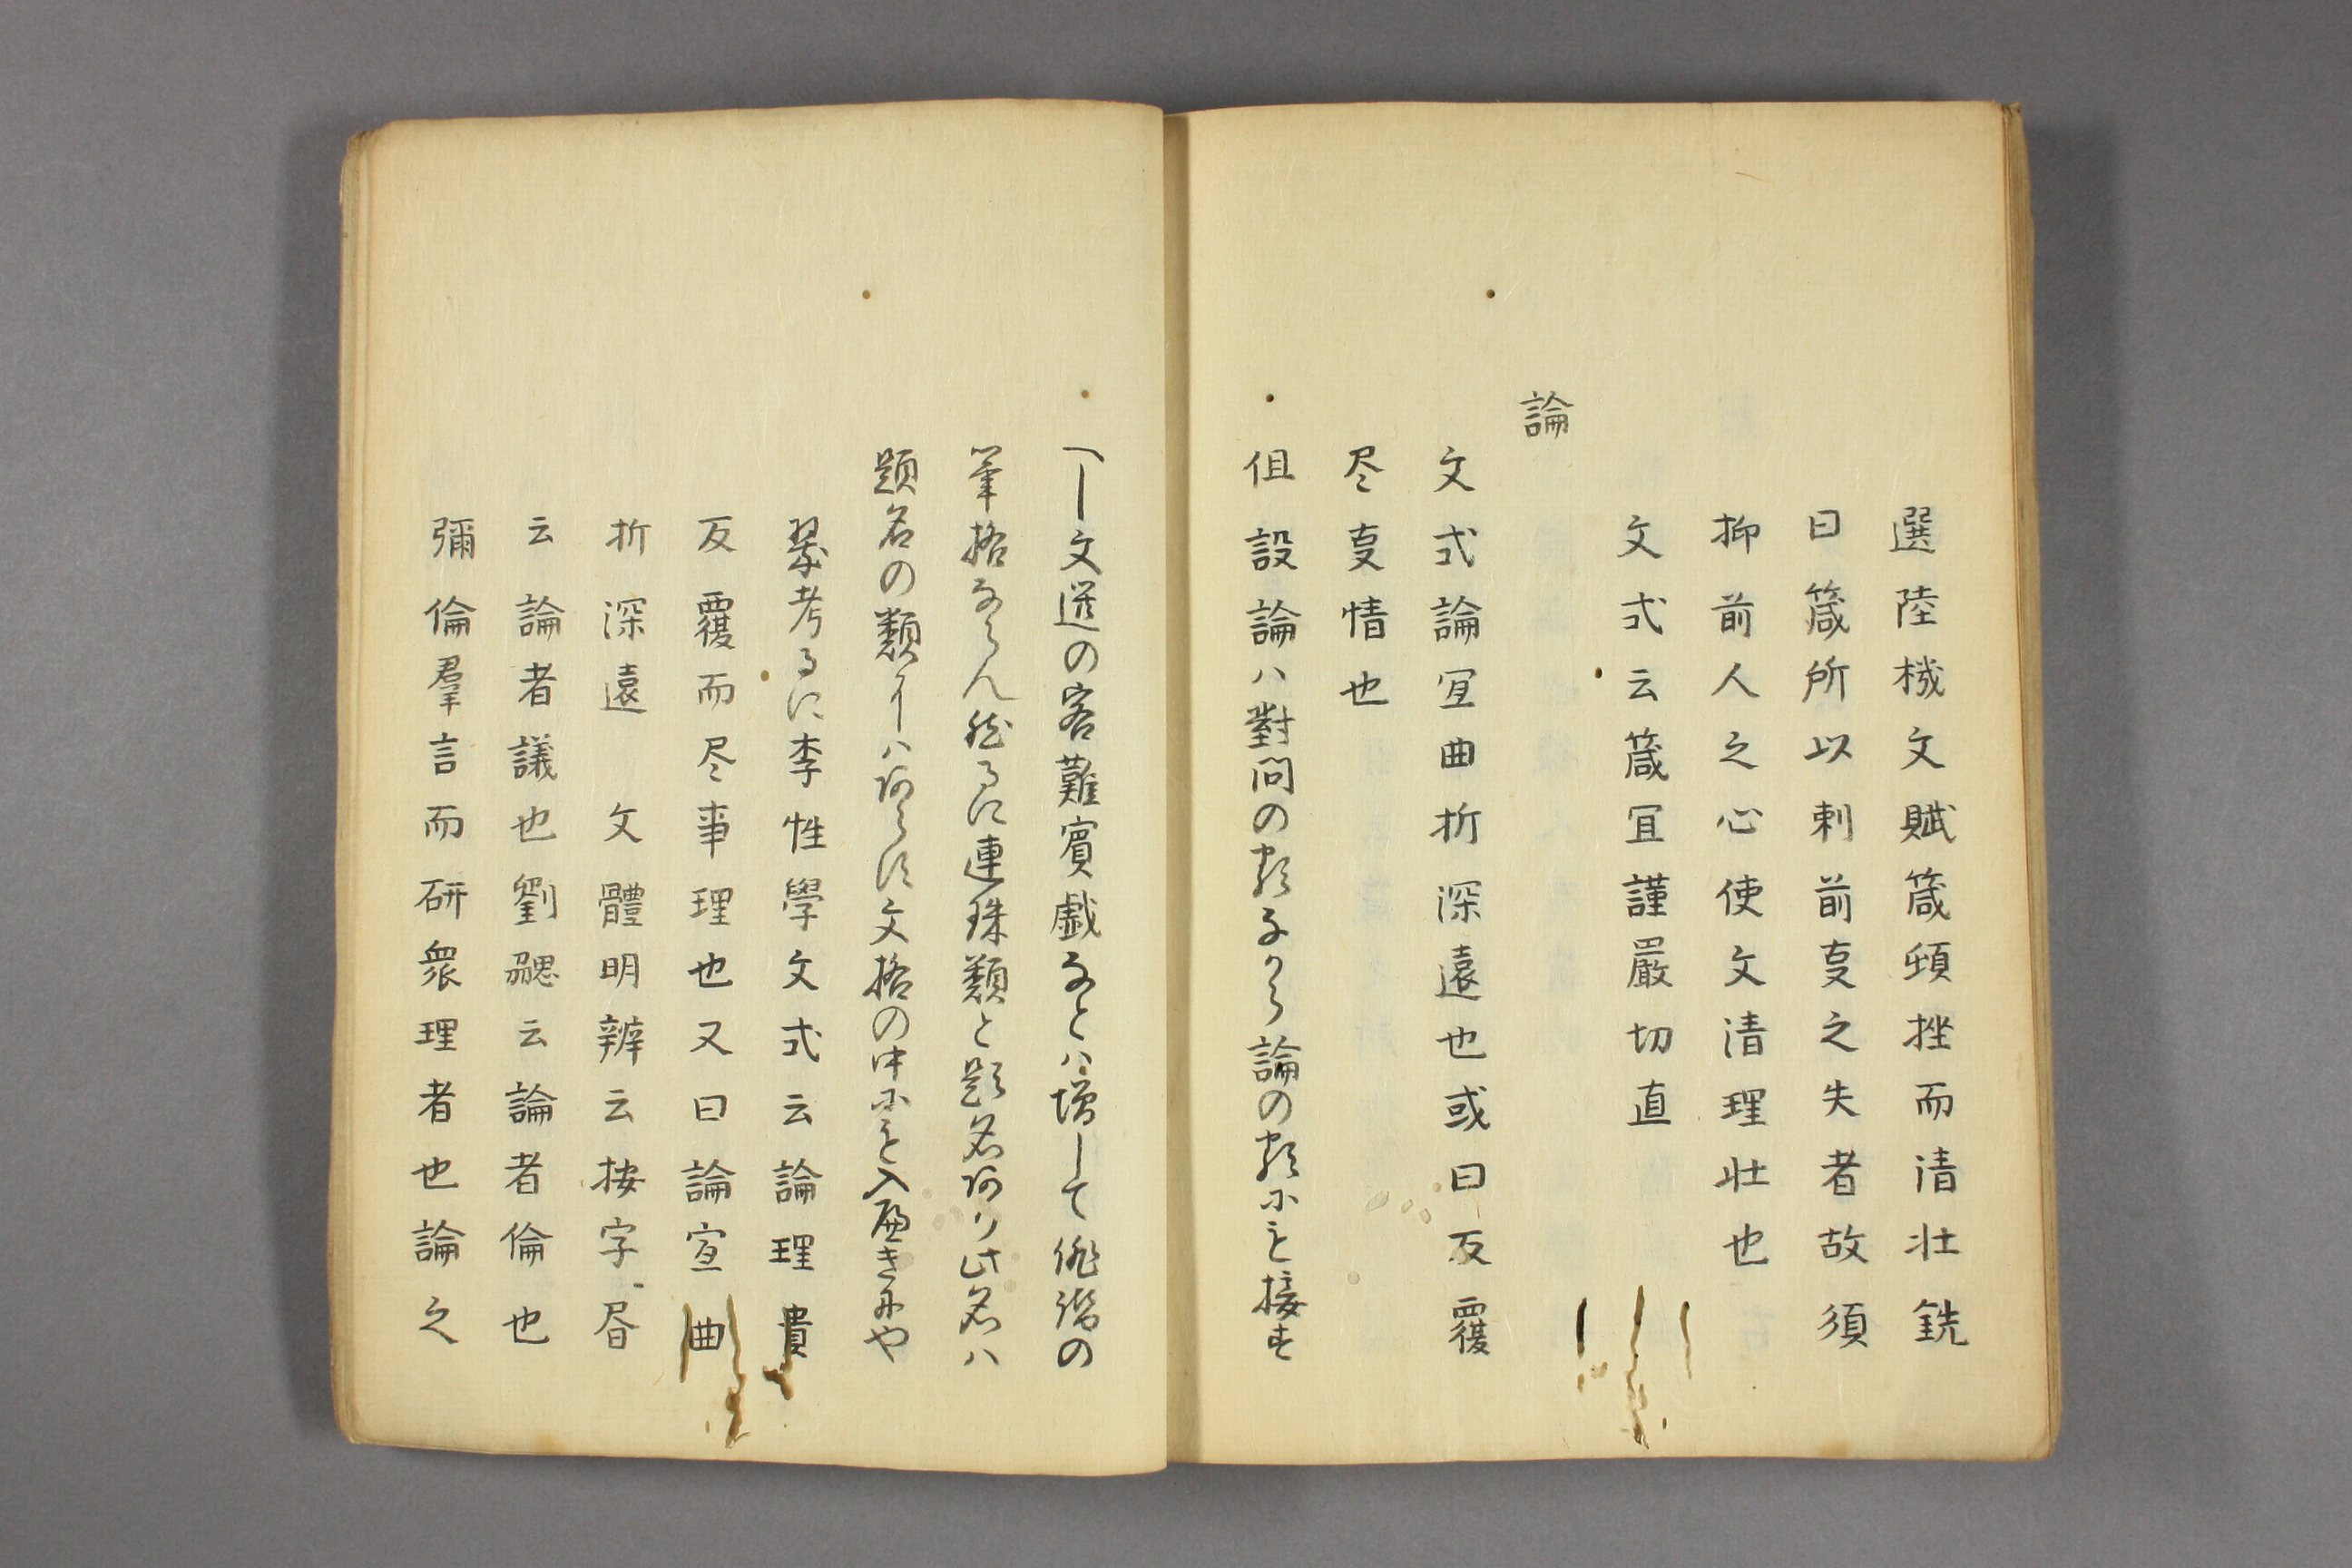 選陸機文賦箴頓挫而清壮銑
曰箴所以刺前㕝之失者故須
抑前人之心使文清理壮也
文式云箴冝謹嚴切直
論
文式論冝曲折深遠也或曰反覆
尽㕝情也
但設論ハ對問の類なから論の類にも接す
へし文選の客難賓戯なとハ増して俳諧の
筆格ならん然るに連珠類と題名あり此名ハ
題名の類にハあらす文格の中にも入へきにや
翠考るに李性學文式云論理貴
反覆而尽事理也又曰論宜曲
折深遠　文體明辨云按字昬
云論者議也劉勰云論者倫也
彌倫羣言而研衆理者也論之